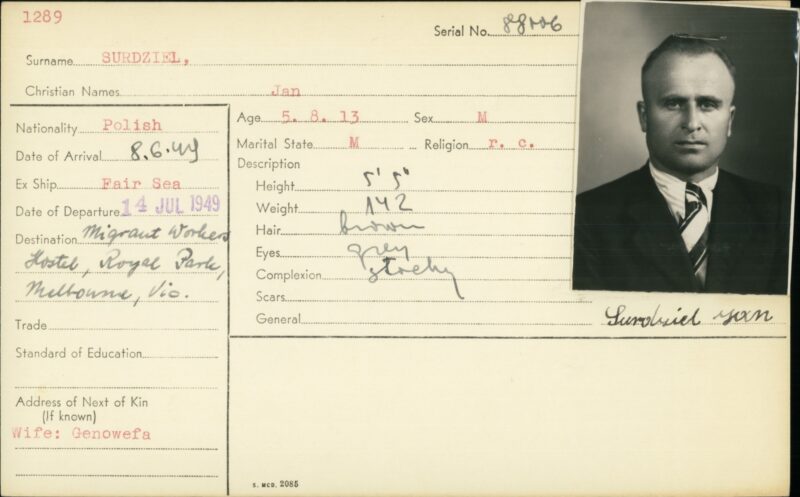 1289
Serial No. 88006
Surname SURDZIEL,
Christian Names Jan
Nationality Polish
Date of Arrival 8.6.49
Ex Ship Fair Sea
Date of Departure 14 JUL 1949
Destination Migrant Workers
Hostel, Royal Park,
Melbourne, Vic.
Trade
Standard of Education
Address of Next of Kin
(If known)
Wife: Genowefa
Age 5. 8. 13 Sex M
Marital State M Religion r. c.
Description
Height 5' 5"
Weight 142
Hair brown
Eyes grey
Complexion
Scars
General
Surdziel Jan
S. MCD. 2085